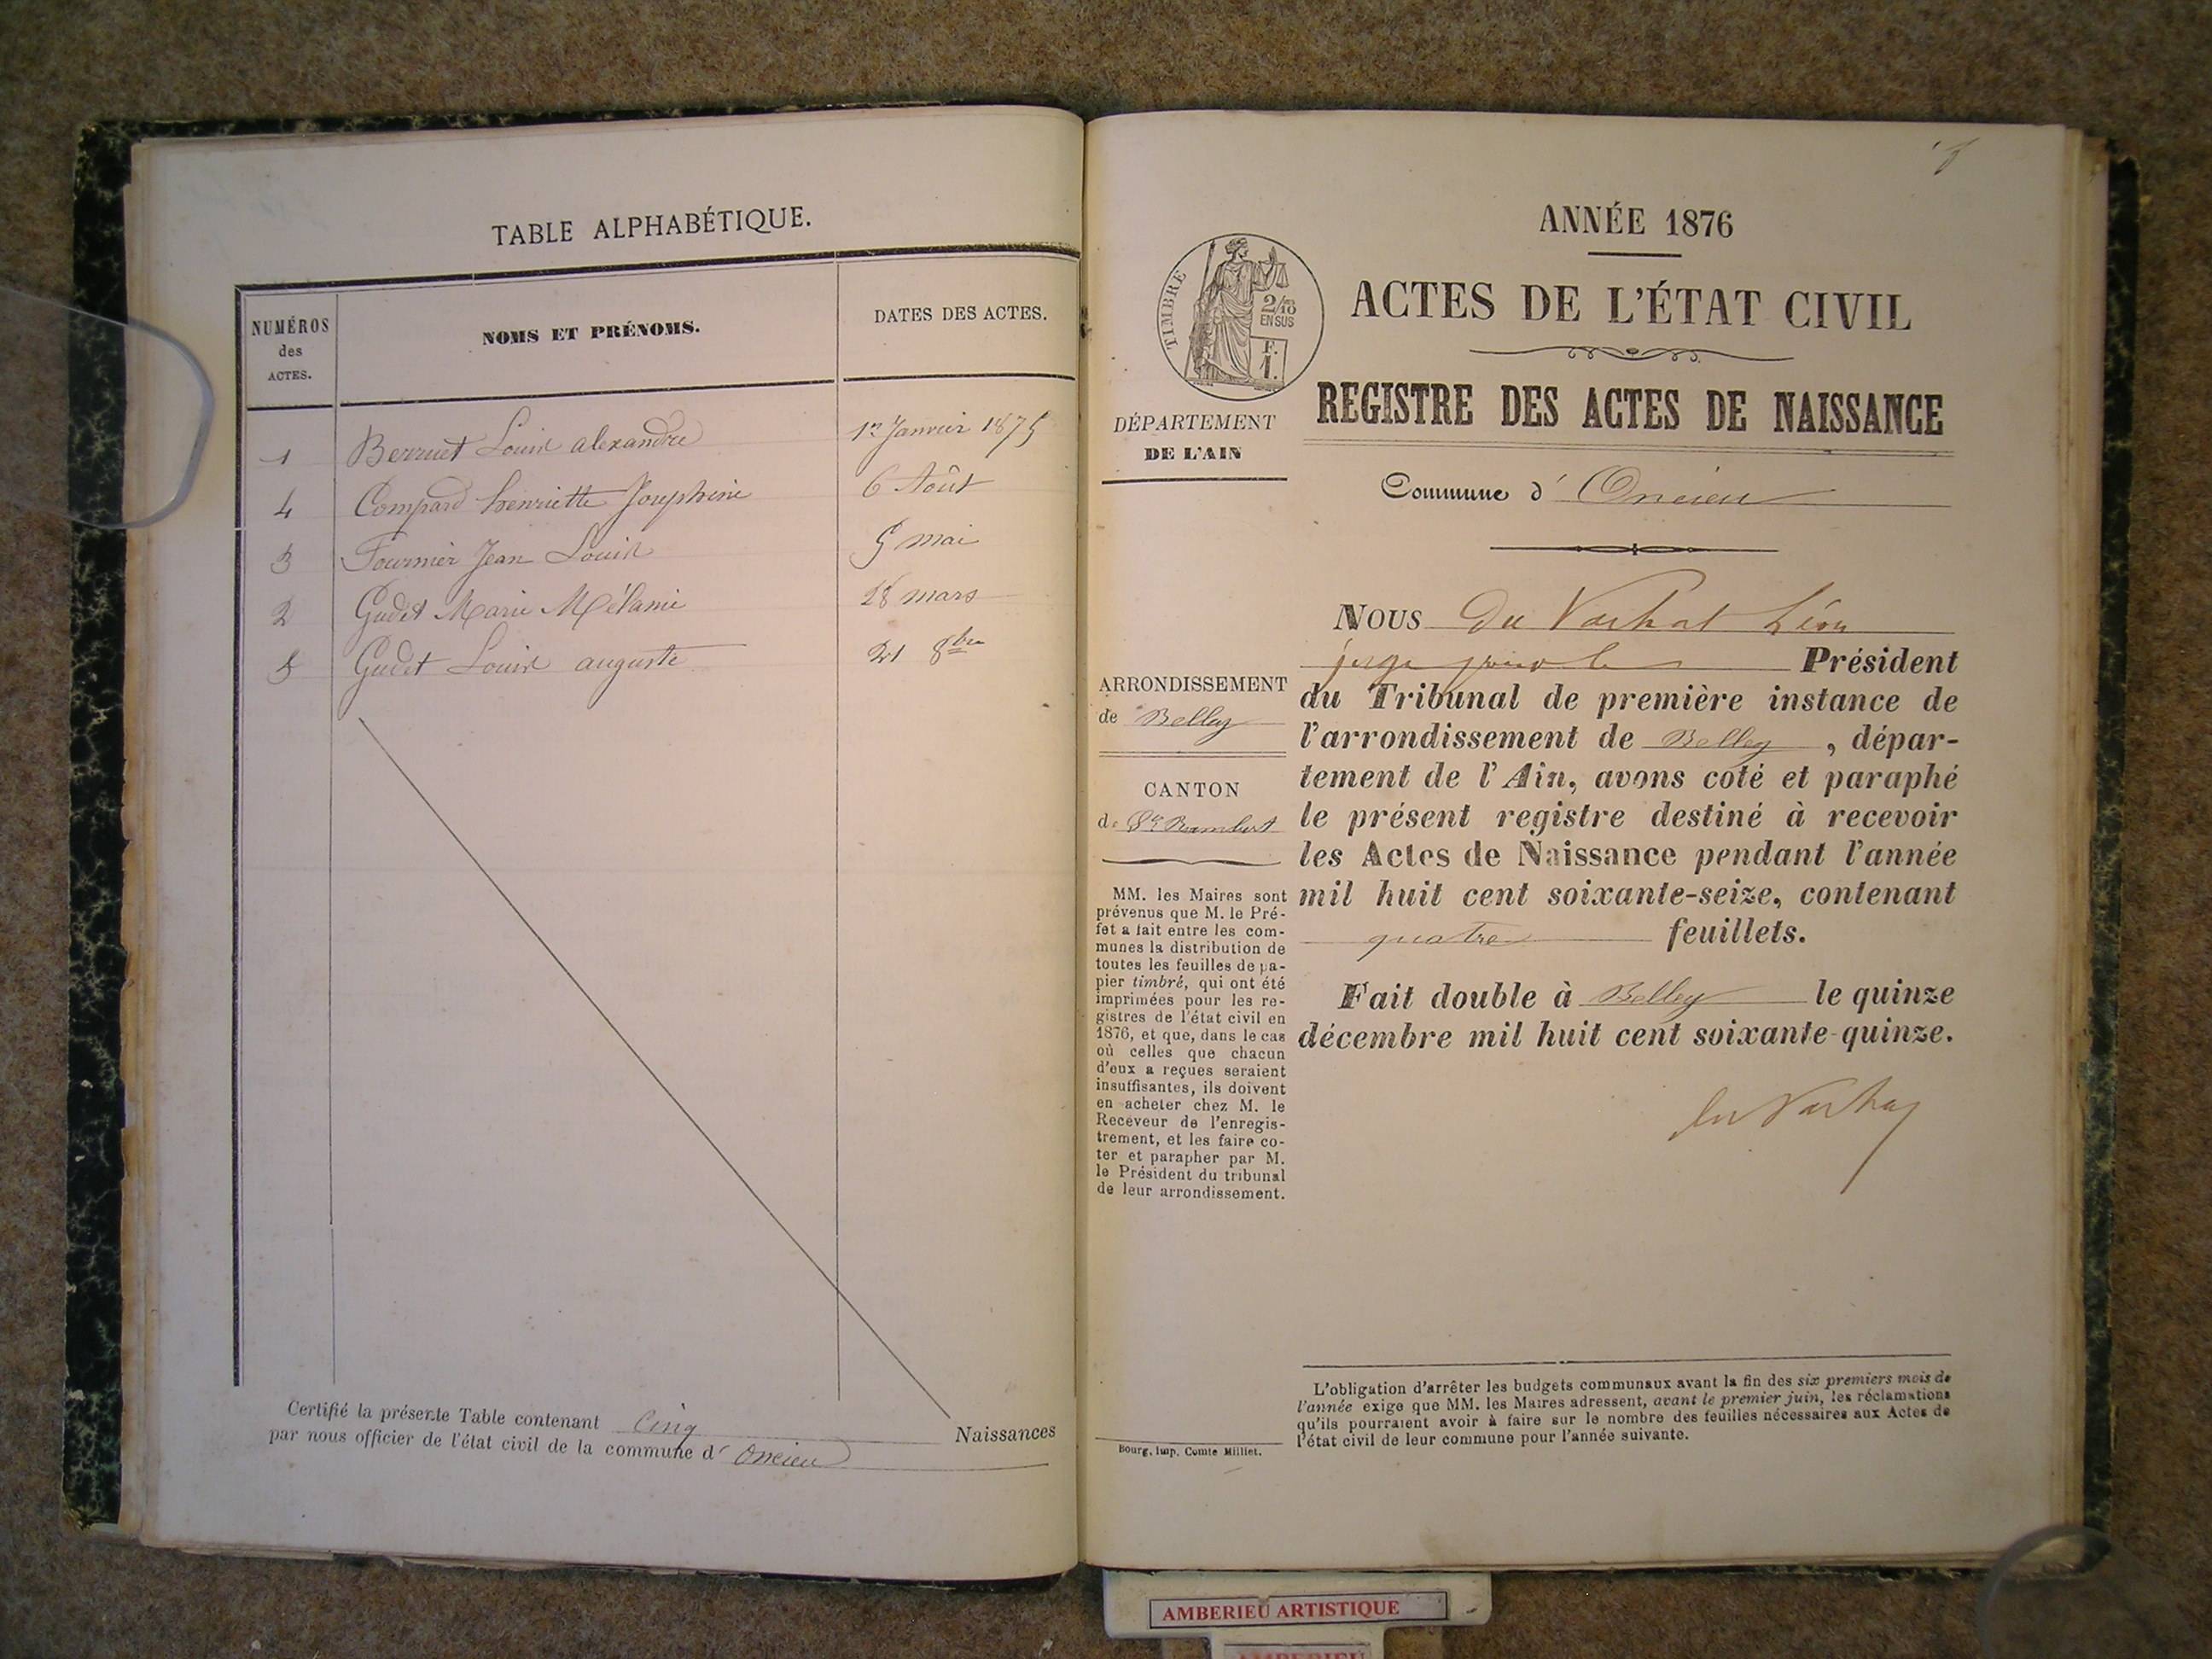 TABLE ALPHABÉTIQUE.
NUMÉROS
des
ACTES.
NOMS ET PRÉNOMS.
DATES DES ACTES.
1 Berruet Louis alexandre 1er Janvier 1875
4 Compard henriette Josephine 6 Août
3 Fournier Jean Louis 5 mai
2 Gudet Marie Mélanie 28 mars
5 Gudet Louis auguste 21 8bre
Certifié la présente Table contenant Cinq Naissances
par nous officier de l'état civil de la commune d' Oncieu
ANNÉE 1876
ACTES DE L'ÉTAT CIVIL
REGISTRE DES ACTES DE NAISSANCE
TIMBRE
2/10
EN SUS
F.
1.
DÉPARTEMENT
DE L'AIN
Commune d' Oncieu
ARRONDISSEMENT
de Belley
CANTON
de St Rambert
MM. les Maires sont
prévenus que M. le Pré-
fet a fait entre les com-
munes la distribution de
toutes les feuilles de pa-
pier timbré, qui ont été
imprimées pour les re-
gistres de l'état civil en
1876, et que, dans le cas
où celles que chacun
d'eux a reçues seraient
insuffisantes, ils doivent
en acheter chez M. le
Receveur de l'enregis-
trement, et les faire co-
ter et parapher par M.
le Président du tribunal
de leur arrondissement.
Bourg, Imp. Comte Milliet.
NOUS Du Vachat Léon
juge pour le Président
du Tribunal de première instance de
l'arrondissement de Belley, dépar-
tement de l'Ain, avons coté et paraphé
le présent registre destiné à recevoir
les Actes de Naissance pendant l'année
mil huit cent soixante-seize, contenant
quatre feuillets.
Fait double à Belley le quinze
décembre mil huit cent soixante-quinze.
du Vachat
L'obligation d'arrêter les budgets communaux avant la fin des six premiers mois de
l'année exige que MM. les Maires adressent, avant le premier juin, les réclamations
qu'ils pourraient avoir à faire sur le nombre des feuilles nécessaires aux Actes de
l'état civil de leur commune pour l'année suivante.
AMBERIEU ARTISTIQUE
AMBERIEU